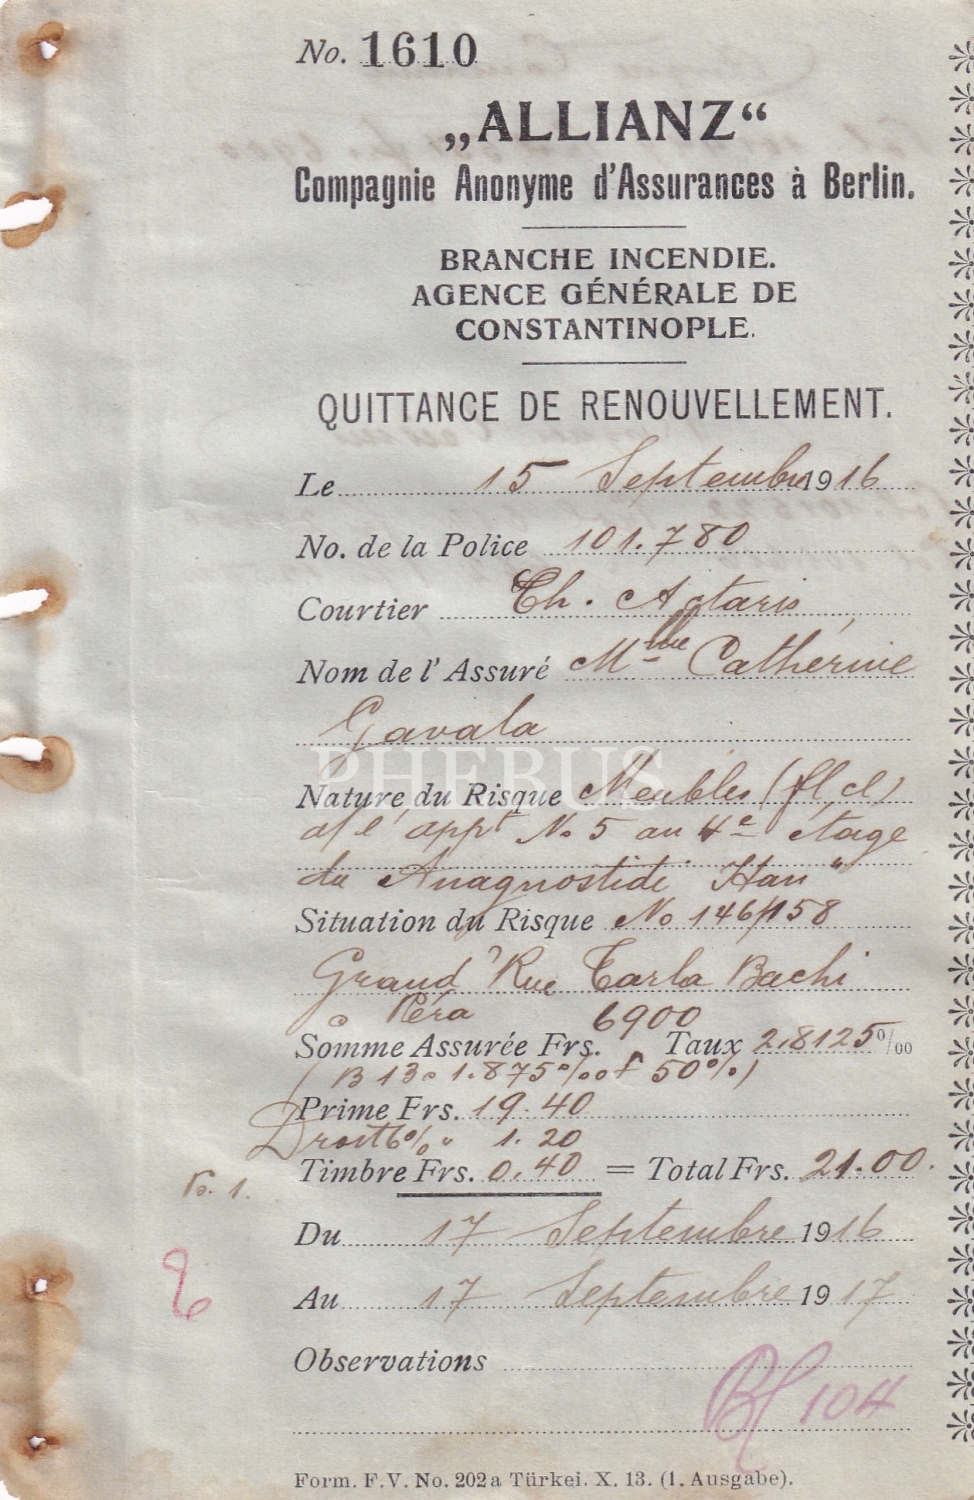 No. 1610
„ALLIANZ“
Compagnie Anonyme d'Assurances à Berlin.
BRANCHE INCENDIE.
AGENCE GÉNÉRALE DE
CONSTANTINOPLE.
QUITTANCE DE RENOUVELLEMENT.
Le 15 Septembre 1916
No. de la Police 101.780
Courtier Th.
Nom de l' Assuré Mme Catherine
Gavala
PHEBUS
Nature du Risque Meubles (fl cl)
a l'appt No 5 au 4e étage
du Anagnostidi Han"
Situation du Risque No 146/158
Grand Rue Tarla Bachi
Péra 6900
Somme Assurée Frs. Taux 2,8125 0/00
(B 13 1.875 0/00 + 50%)
Prime Frs. 19.40
Droit 6% " 1.20
Timbre Frs. 0.40 = Total Frs. 21.00.
1.
Du 17 Septembre 1916
Au 17 Septembre 1917
Observations
104
Form. F.V. No. 202a Türkei. X. 13. (1. Ausgabe).